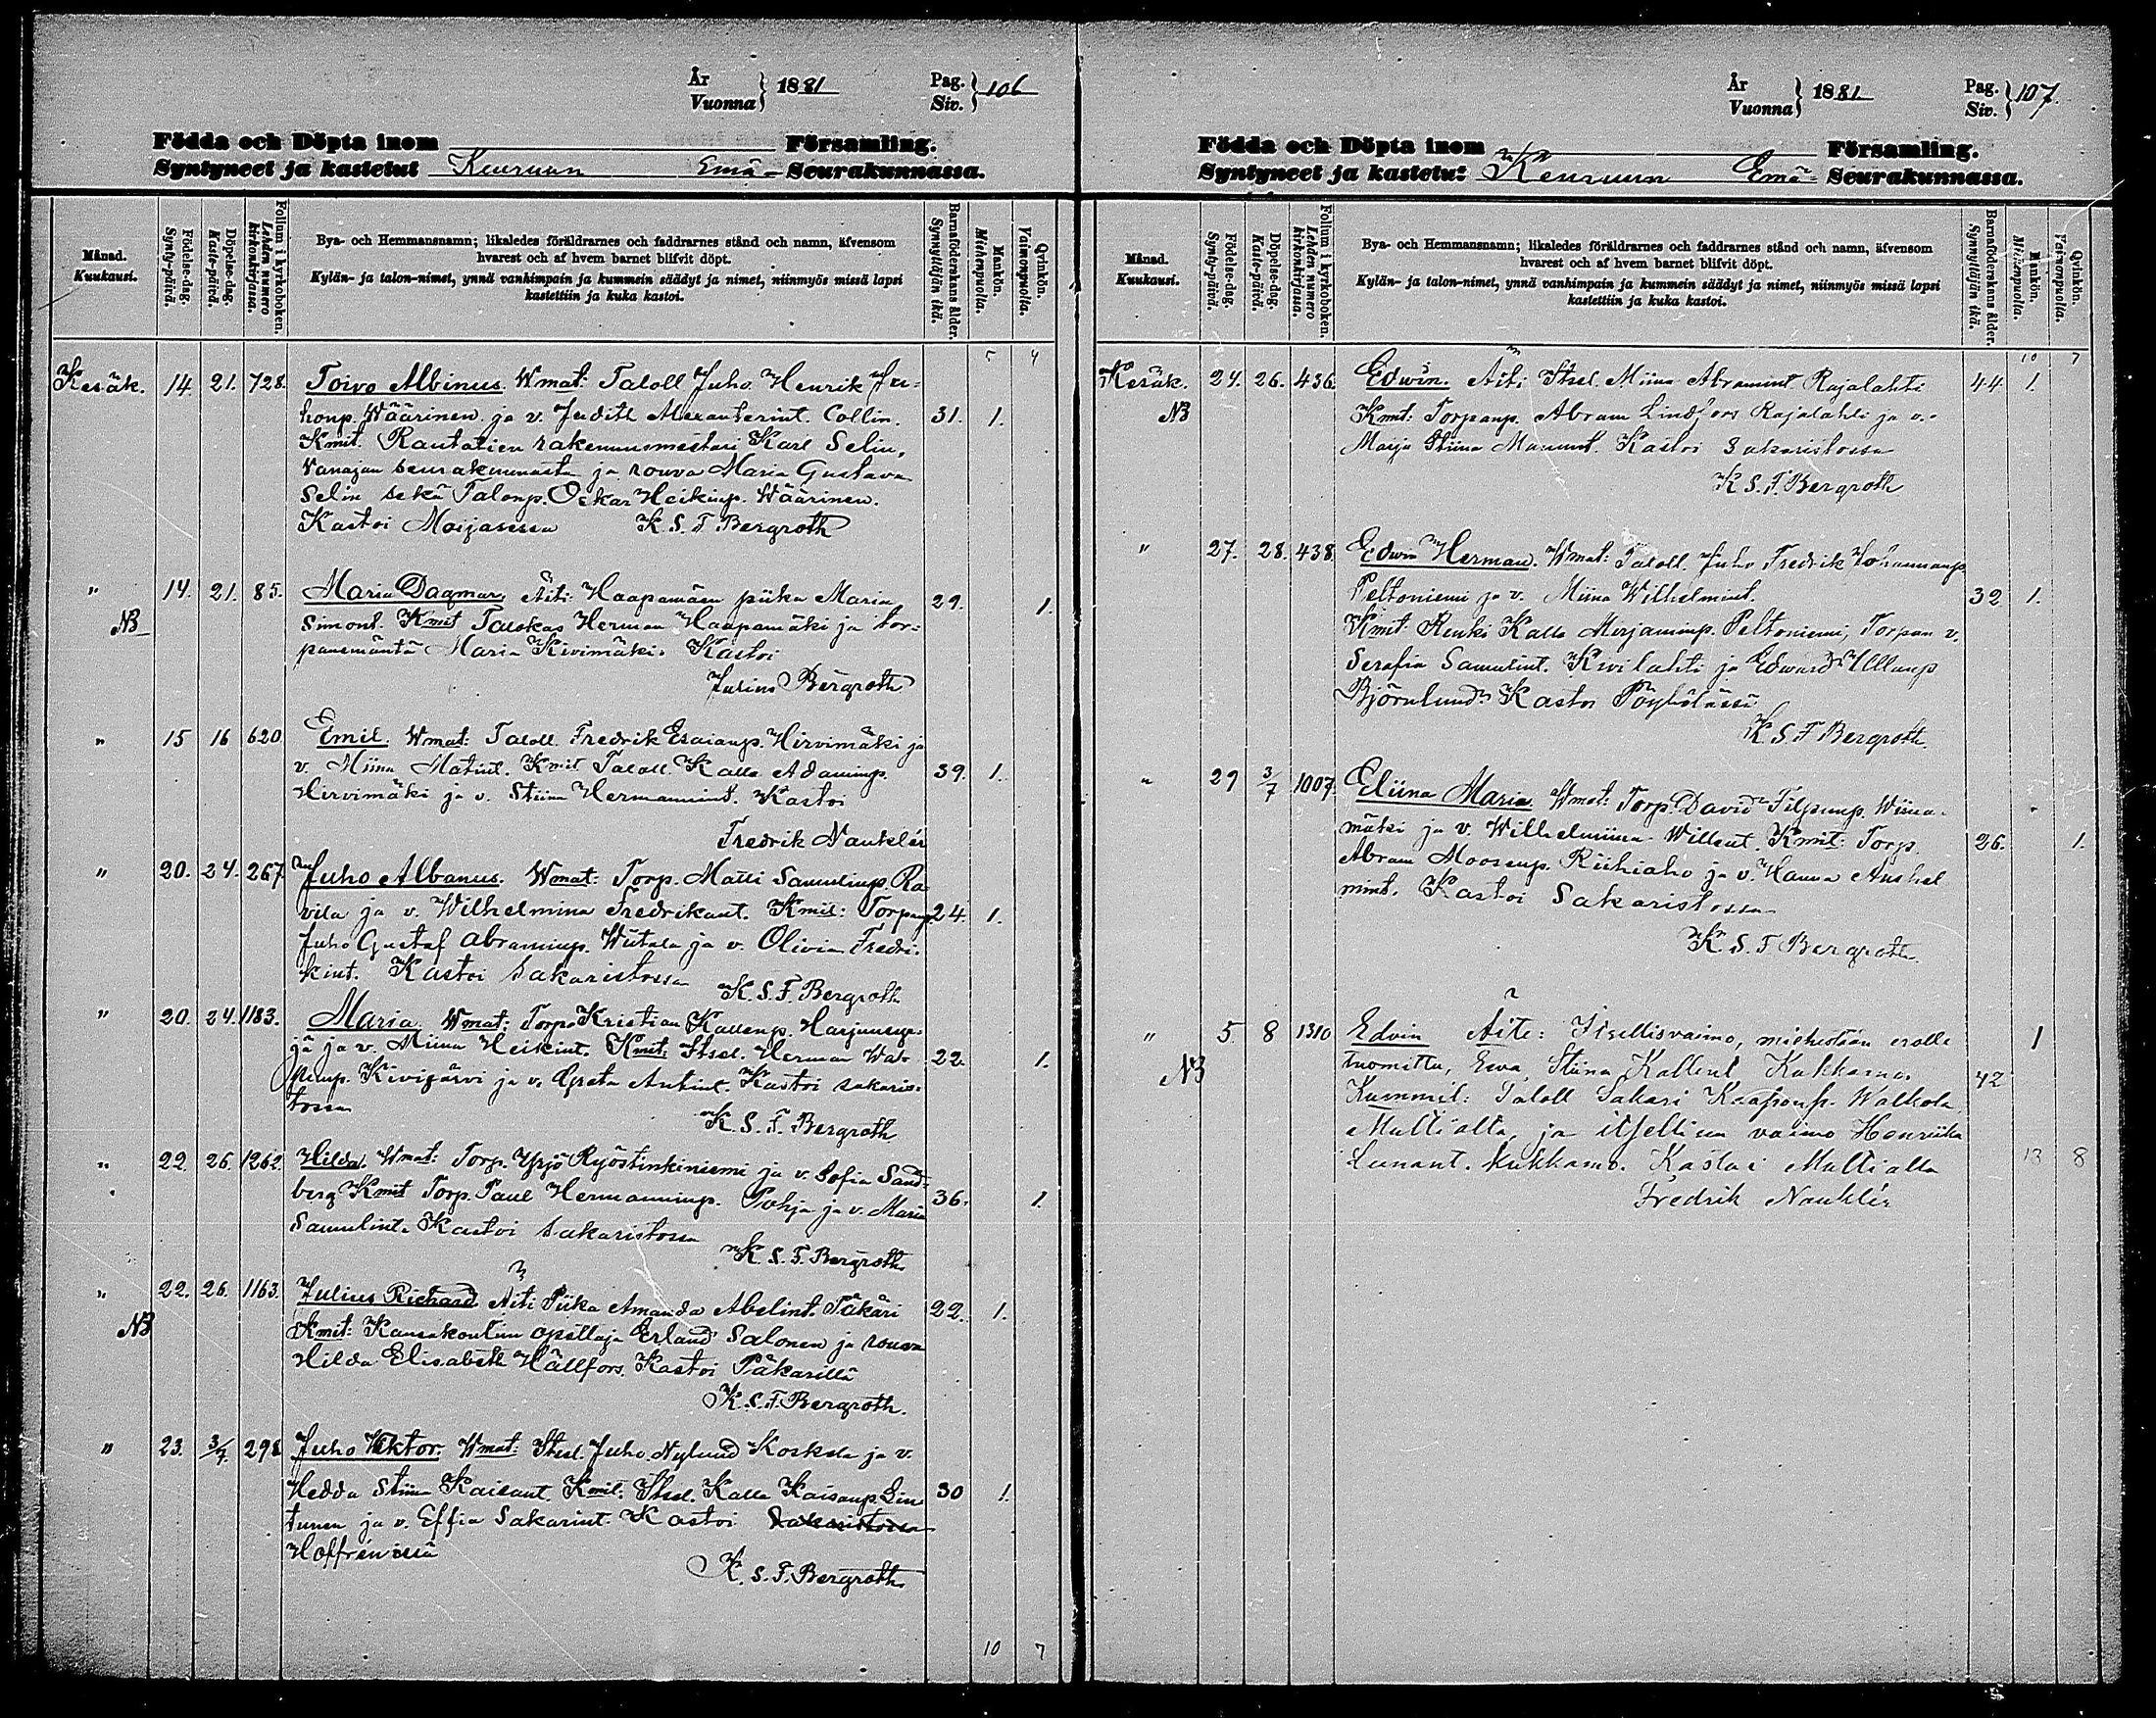 År
Vuonna } 1881 Pag.
Siv. } 106
Födda och Döpta inom Församling.
Syntyneet ja kastetut Keuruun Emä- Seurakunnassa.
Månad.
Kuukausi.
Födelse-dag.
Synty-päivä.
Döpelse-dag.
Kaste-päivä.
Folium i kyrkoboken.
Lehden numero
kirkonkirjassa.
Bya- och Hemmansnamn; likaledes föräldrarnes och faddrarnes stånd och namn, äfvensom
hvarest och af hvem barnet blifvit döpt.
Kylän- ja talon-nimet, ynnä vanhimpain ja kummein säädyt ja nimet, niinmyös missä lapsi
kastettiin ja kuka kastoi.
Barnaföderskans ålder.
Synnyttäjän ikä.
Mankön.
Miehenpuolia.
Qvinkön.
Vaimonpuolia.
5 4
Kesäk. 14. 21. 728. Toivo Albinus. Wmat: Taloll Juho Henrik Ju-
honp. Väärinen ja v. Judith Alexanterint. Collin. 31. 1.
Kmit. Rautatien rakennusmestari Karl Selin,
Vanajan seurakunnasta ja rouva Maria Gustava
Selin sekä Talonp. Oskar Heikinp. Väärinen.
Kastoi K. S. F. Bergroth
" 14. 21. 85. Maria Dagmar, Äiti: Haapamäen piika Maria 29. 1.
NB Simont. Kmit Herman Haapamäki ja tor-
panemäntä Maria Kivimäki. Kastoi
Julius Bergroth
" 15 16 620 Emil. Wmat: Taloll. Fredrik Esaianp. Hirvimäki ja
v. Miina Matint. Kmit Taloll. Kalle Adaminp. 39. 1.
Hirvimäki ja v. Stiina Hermannint. Kastoi
Fredrik Nauklér
" 20. 24. 267. Juho Albanus. Wmat: Torp. Matti Samulinp. Ra-
vila ja v. Wilhelmina Fredrikant. Kmit: Torpanp. 24. 1.
Juho Gustaf Abraminp. Wiitala ja v. Olivia Fredri-
kint. Kastoi Sakaristossa
K. S. F. Bergroth
" 20. 24. 1183. Maria Wmat: Torp. Kristian Kallenp.
jä ja v. Miina Heikint. Kmit: Itsel. Herman 22. 1.
Kivijärvi ja v. Greta Antint. Kastoi sakaris-
tossa
K. S. F. Bergroth
" 22. 26. 1262. Hilda. Wmat: Torp. Yrjö Ryöstinkiniemi ja v. Sofia Sand-
berg Kmit Torp. Paul Hermanninp. Pohja ja v. Maria 36. 1.
Samulint. Kastoi Sakaristossa
K. S. F. Bergroth
" 22. 26. 1163. Julius Richard Äiti Piika Amanda Abelint. Päkäri 22. 1.
NB Kmit: Kansakoulun opettaja Erland Salonen ja rouva
Hilda Elisabeth Hällfors. Kastoi Päkärillä
K. S. F. Bergroth.
" 23. 3/7. 298 Juho Viktor. Wmat: Itsel. Juho Nylund Koskela ja v.
Hedda Stiina Kaisant. Kmit: Itsel. Kalle Kaisanp. Lin-
tunen ja v. Effia Sakarint. Kastoi Sakaristossa 30 1.
Hoffrénissä
K. S. F. Bergroth
10 7
År
Vuonna } 1881. Pag.
Siv. } 107.
Födda och Döpta inom Församling.
Syntyneet ja kastetut Keuruun Emä Seurakunnassa.
Månad.
Kuukausi.
Födelse-dag.
Synty-päivä.
Döpelse-dag.
Kaste-päivä.
Folium i kyrkoboken.
Lehden numero
kirkonkirjassa.
Bya- och Hemmansnamn; likaledes föräldrarnes och faddrarnes stånd och namn, äfvensom
hvarest och af hvem barnet blifvit döpt.
Kylän- ja talon-nimet, ynnä vanhimpain ja kummein säädyt ja nimet, niinmyös missä lapsi
kastettiin ja kuka kastoi.
Barnaföderskans ålder.
Synnyttäjän ikä.
Mankön.
Miehenpuolia.
Qvinkön.
Vaimonpuolia.
10 7
Kesäk. 24. 26. 436. Edwin. Äiti Itsel. Miina Abramint Rajalahti 44 1.
NB Kmit: Torpanp. Abram Lindfors Rajalahti ja v.
Maija Stiina Kastoi Sakaristossa
K. S. F. Bergroth
" 27. 28. 438. Edwin Herman. Wmat: Taloll. Juho Fredrik Johannanp.
Peltoniemi ja v. Miina Wilhelmint. 32 1.
Kmit: Renki Kalle Merjaminp. Peltoniemi, Torpan v.
Serafia Samulint. Kivilahti ja Edward Ullanp
Björnlund. Kastoi Pöyhölässä
K. S. F. Bergroth.
" 29 3/7 1007. Eliina Maria. Wmat: Torp. David Filpunp. Wiina-
mäki ja v. Wilhelmiina Willent. Kmit: Torp. 26. 1.
Abram Moosenp. Riihiaho ja v. Hanna Anshel-
mint. Kastoi Sakaristossa
K. S. F. Bergroth.
" 5. 8 1310 Edvin Äite: Itsellisvaimo, miehestään erolle 1
NB tuomittu, Eeva Stiina Kallent Kukkamo. 42
Kummit: Taloll Sakari Kaaponp. Walkola
Multialta, ja itsellisen vaimo Henriika
Kukkamo. Kastoi Multialla 13 8
Fredrik Nauklér